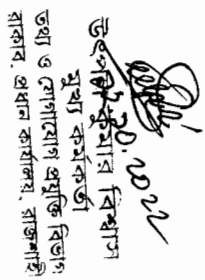 ২০.১০.২০২২
উৎপল কুমার বিশ্বাস
মুখ্য কর্মকর্তা
তথ্য ও যোগাযোগ প্রযুক্তি বিভাগ
রাকাব, প্রধান কার্যালয়, রাজশাহী